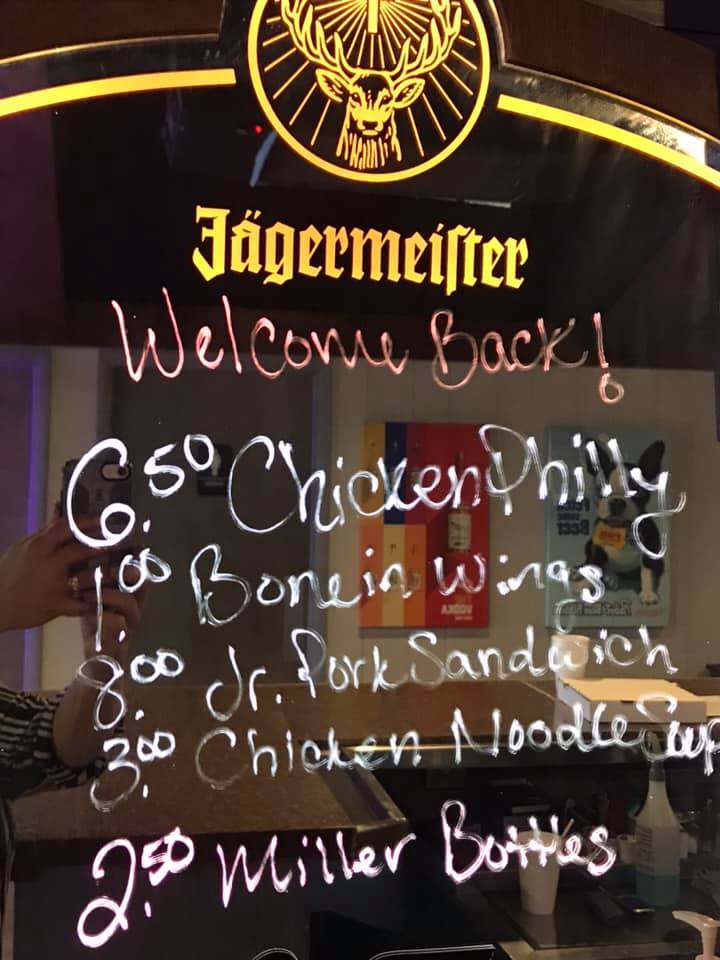 Jägermeister
Welcome Back!
6.50 Chicken Philly
1.00 Bone in Wings
8.00 Jr. Pork Sandwich
3.00 Chicken Noodle Soup
2.50 Miller Bottles
VODKA
Beer